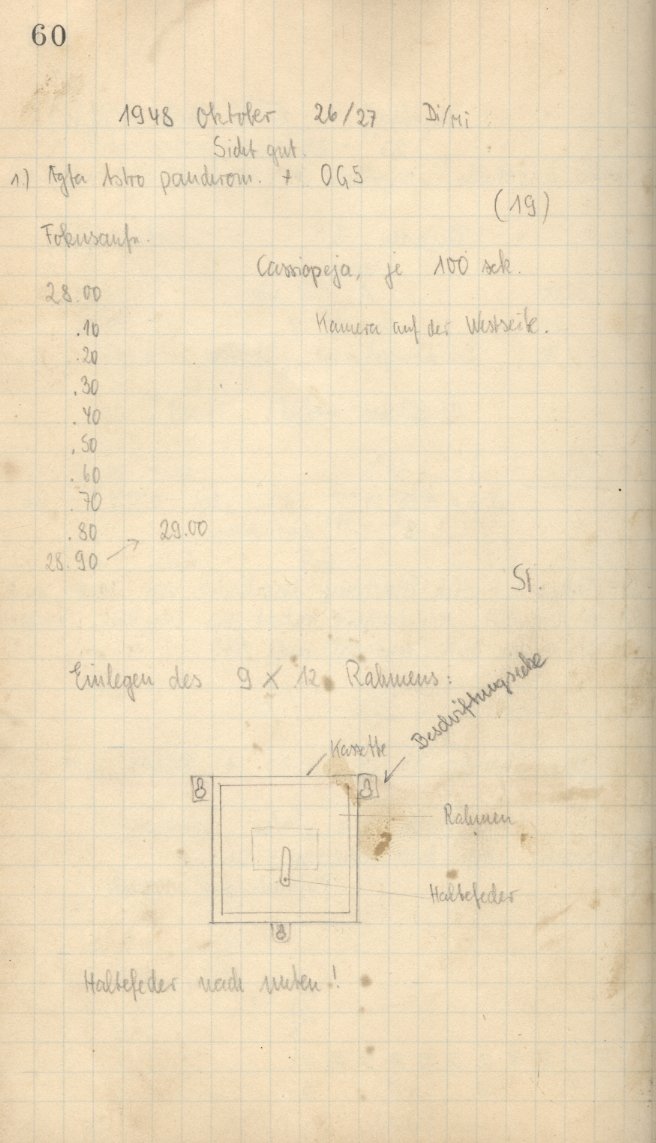 60
1948 Oktober 26/27 Di/Mi
Sicht gut.
1.) Agfa Astro panchrom. + OG5
(19)
Fokusaufn.
Cassiopeja, je 100 sek.
28.00
Kamera auf der Westseite.
.10
.20
.30
.40
.50
.60
.70
.80 29.00
28.90
St.
Einlegen des 9 X 12 Rahmens:
Beschriftungsecke
Kassette
Rahmen
Haltefeder
Haltefeder nach unten!